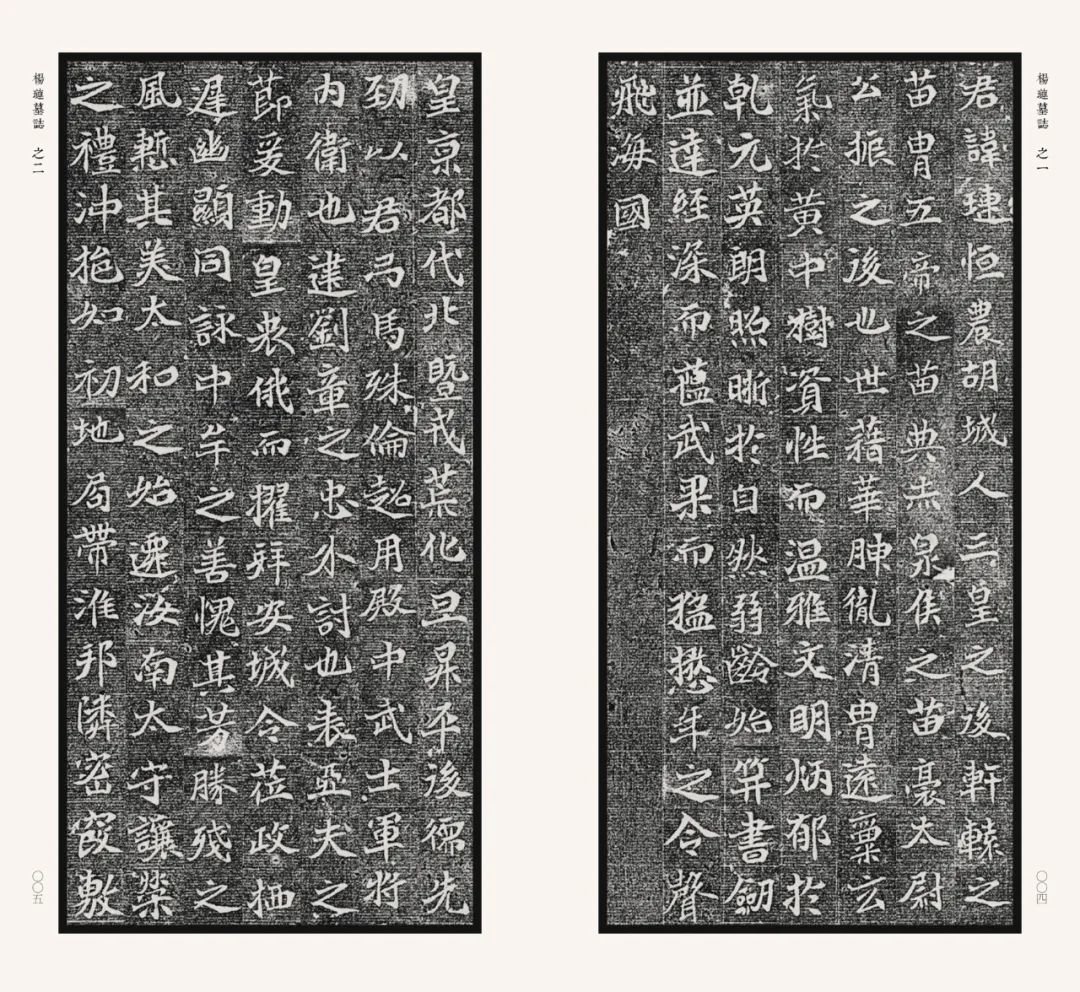 楊璉墓誌 之一
君諱璉恒農胡城人三皇之後軒轅之
苗胄五帝之苗典赤泉侯之苗裔太尉
公振之後也世藉華胂胤清胄遠稟玄
氣於黃中樹資性而温雅文明炳郁於
乾元英朗照晣於自然弱齡始筭書劒
並達經深而藴武果而猛懋年之令聲
飛海國
〇〇四
皇京都代北暨戎葉化旦昇平後德先
劲以君弓馬殊倫起用殿中武士軍將
内衛也逮劉章之忠外討也表亞夫之
莭爰動皇衷俄而擢拜安城令莅政栖
遲幽顯同詠中牟之善愧其芳勝殘之
風慙其美太和之始遷汝南太守讓榮
之禮沖挹如初地局帶淮邦隣密敷
楊璉墓誌 之二
〇〇五